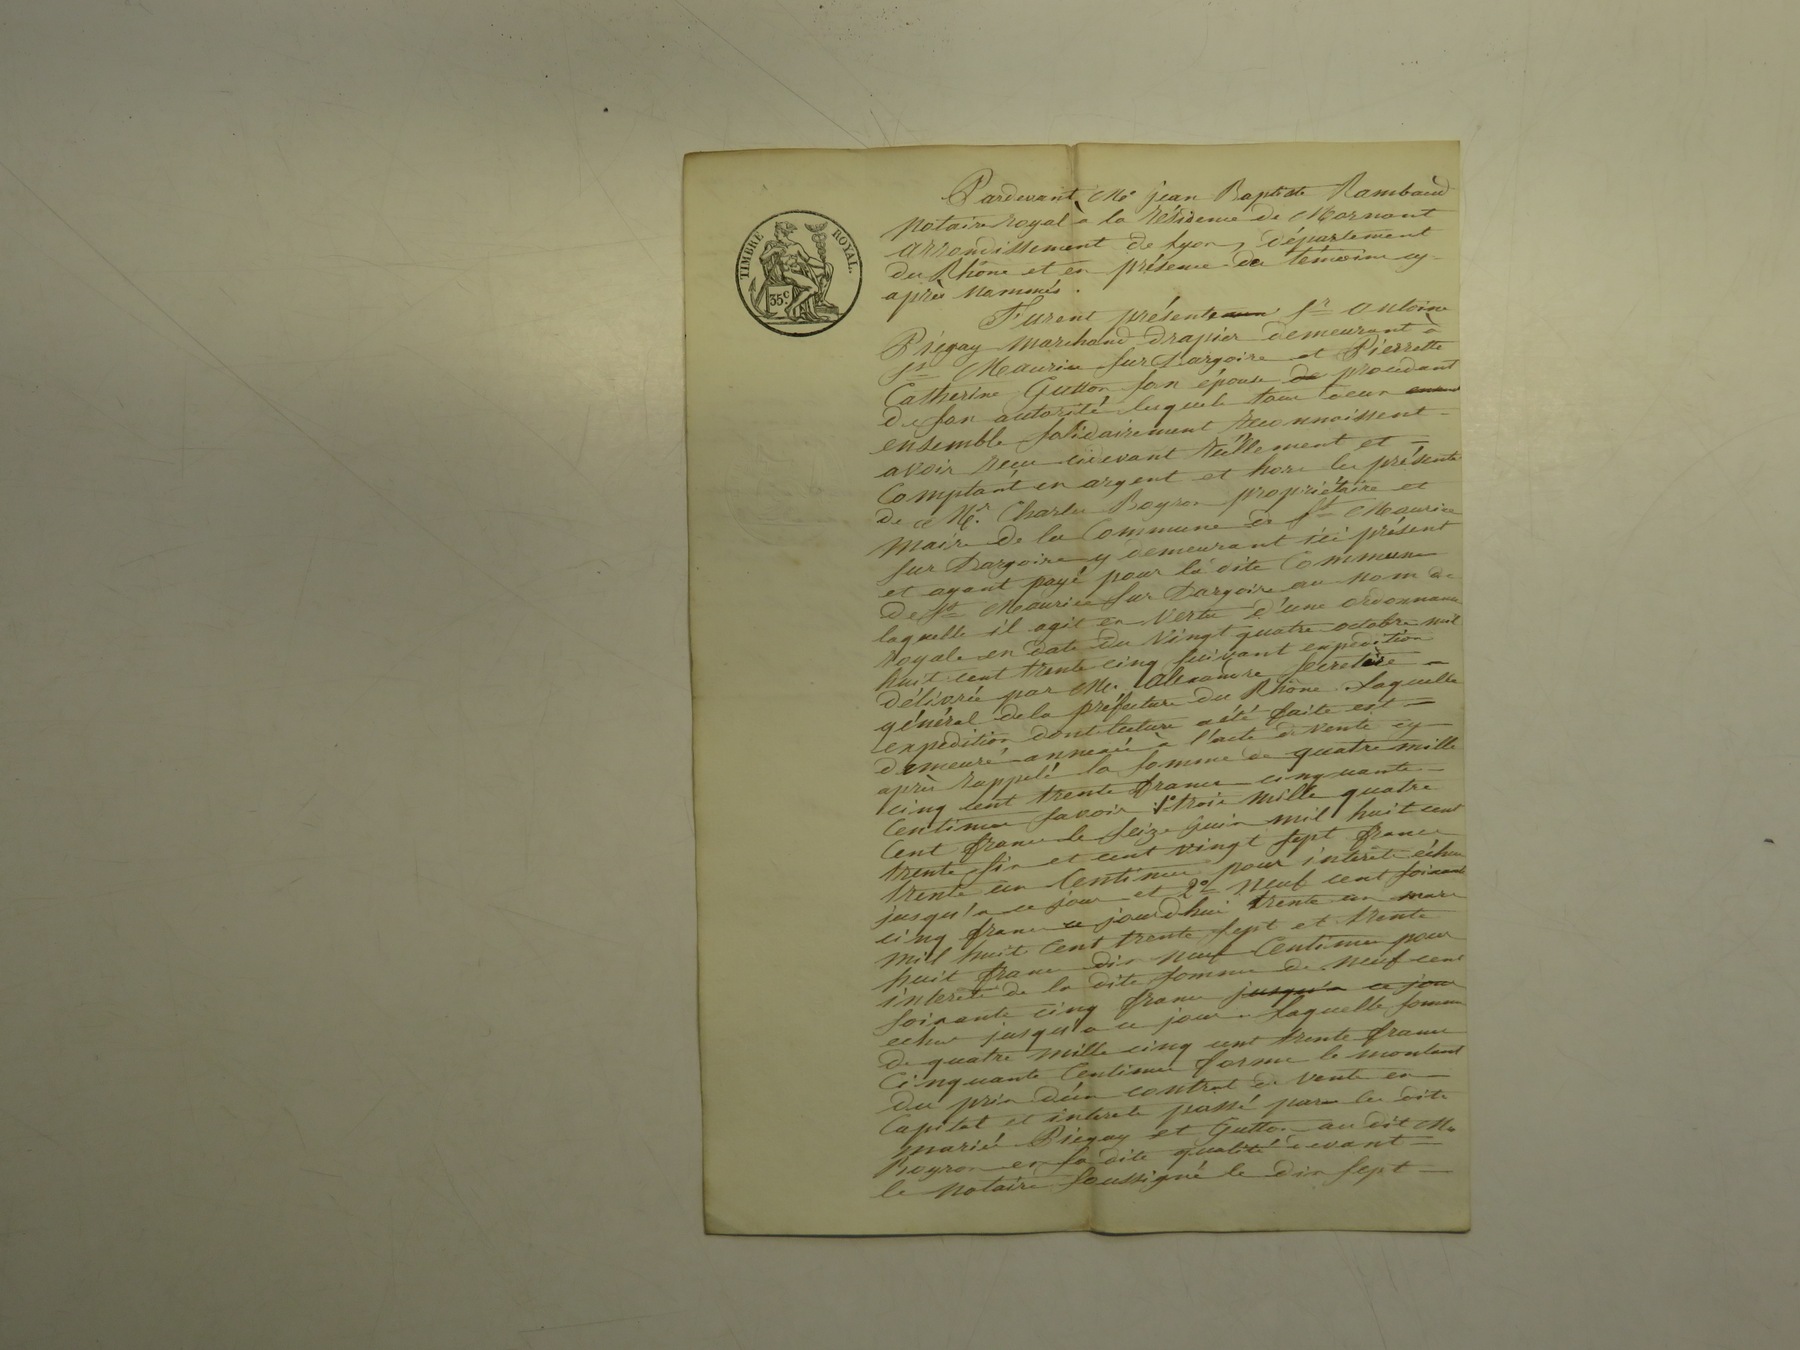 TIMBRE ROYAL.
35c.
Pardevant Me Jean Baptiste Rambaud
Notaire royal a la résidence de Mornant
arrondissement de Lyon, département
du Rhône et en présence de témoins cy-
après nommés.
Furent présents Sr Antoine
Piégay Marchand drapier demeurant à
St Maurice sur Dargoire et Pierrette
Catherine Gutton son épouse de procédant
de son autorité lesquels tous deux
ensemble solidairement reconnoissent
avoir reçu cidevant réellement et
Comptant en argent et hors les présentes
de Mr. Charles Boyron propriétaire et
Maire de la Commune de St Maurice
sur Dargoire y demeurant ici présent
et ayant payé pour la dite Commune
De St Maurice sur Dargoire au nom de
laquelle il agit en vertu d'une ordonnance
Royale en date du vingt quatre octobre mil
huit cent trente cinq suivant expédition
délivrée par M. Alexandre secretaire
général de la préfecture du Rhône. Laquelle
expédition dont lecture a été faite est
demeuré annexée à l'acte de vente cy
après rappelé la somme de quatre mille
cinq cent trente francs cinquante
Centimes savoir 1o trois mille quatre
Cent francs le seize juin mil huit cent
trente six et cent vingt sept francs
trente un Centimes pour intérêts échus
jusqu'a ce jour et 2o neuf cent soixante
cinq francs ce jourd'hui trente un mars
mil huit Cent trente sept et trente
huit francs dix neuf Centimes pour
intérêts de la dite somme de neuf cent
soixante cinq francs jusqu'a ce jour
echus jusqu'a ce jour. Laquelle somme
de quatre mille cinq cent trente francs
Cinquante Centimes forme le montant
du prix d'un contrat de vente en
Capital et intérêts passé par les dits
mariés Piégay et Gutton au dit Mr
Boyron en sa dite qualité devant
le notaire soussigné le dix sept